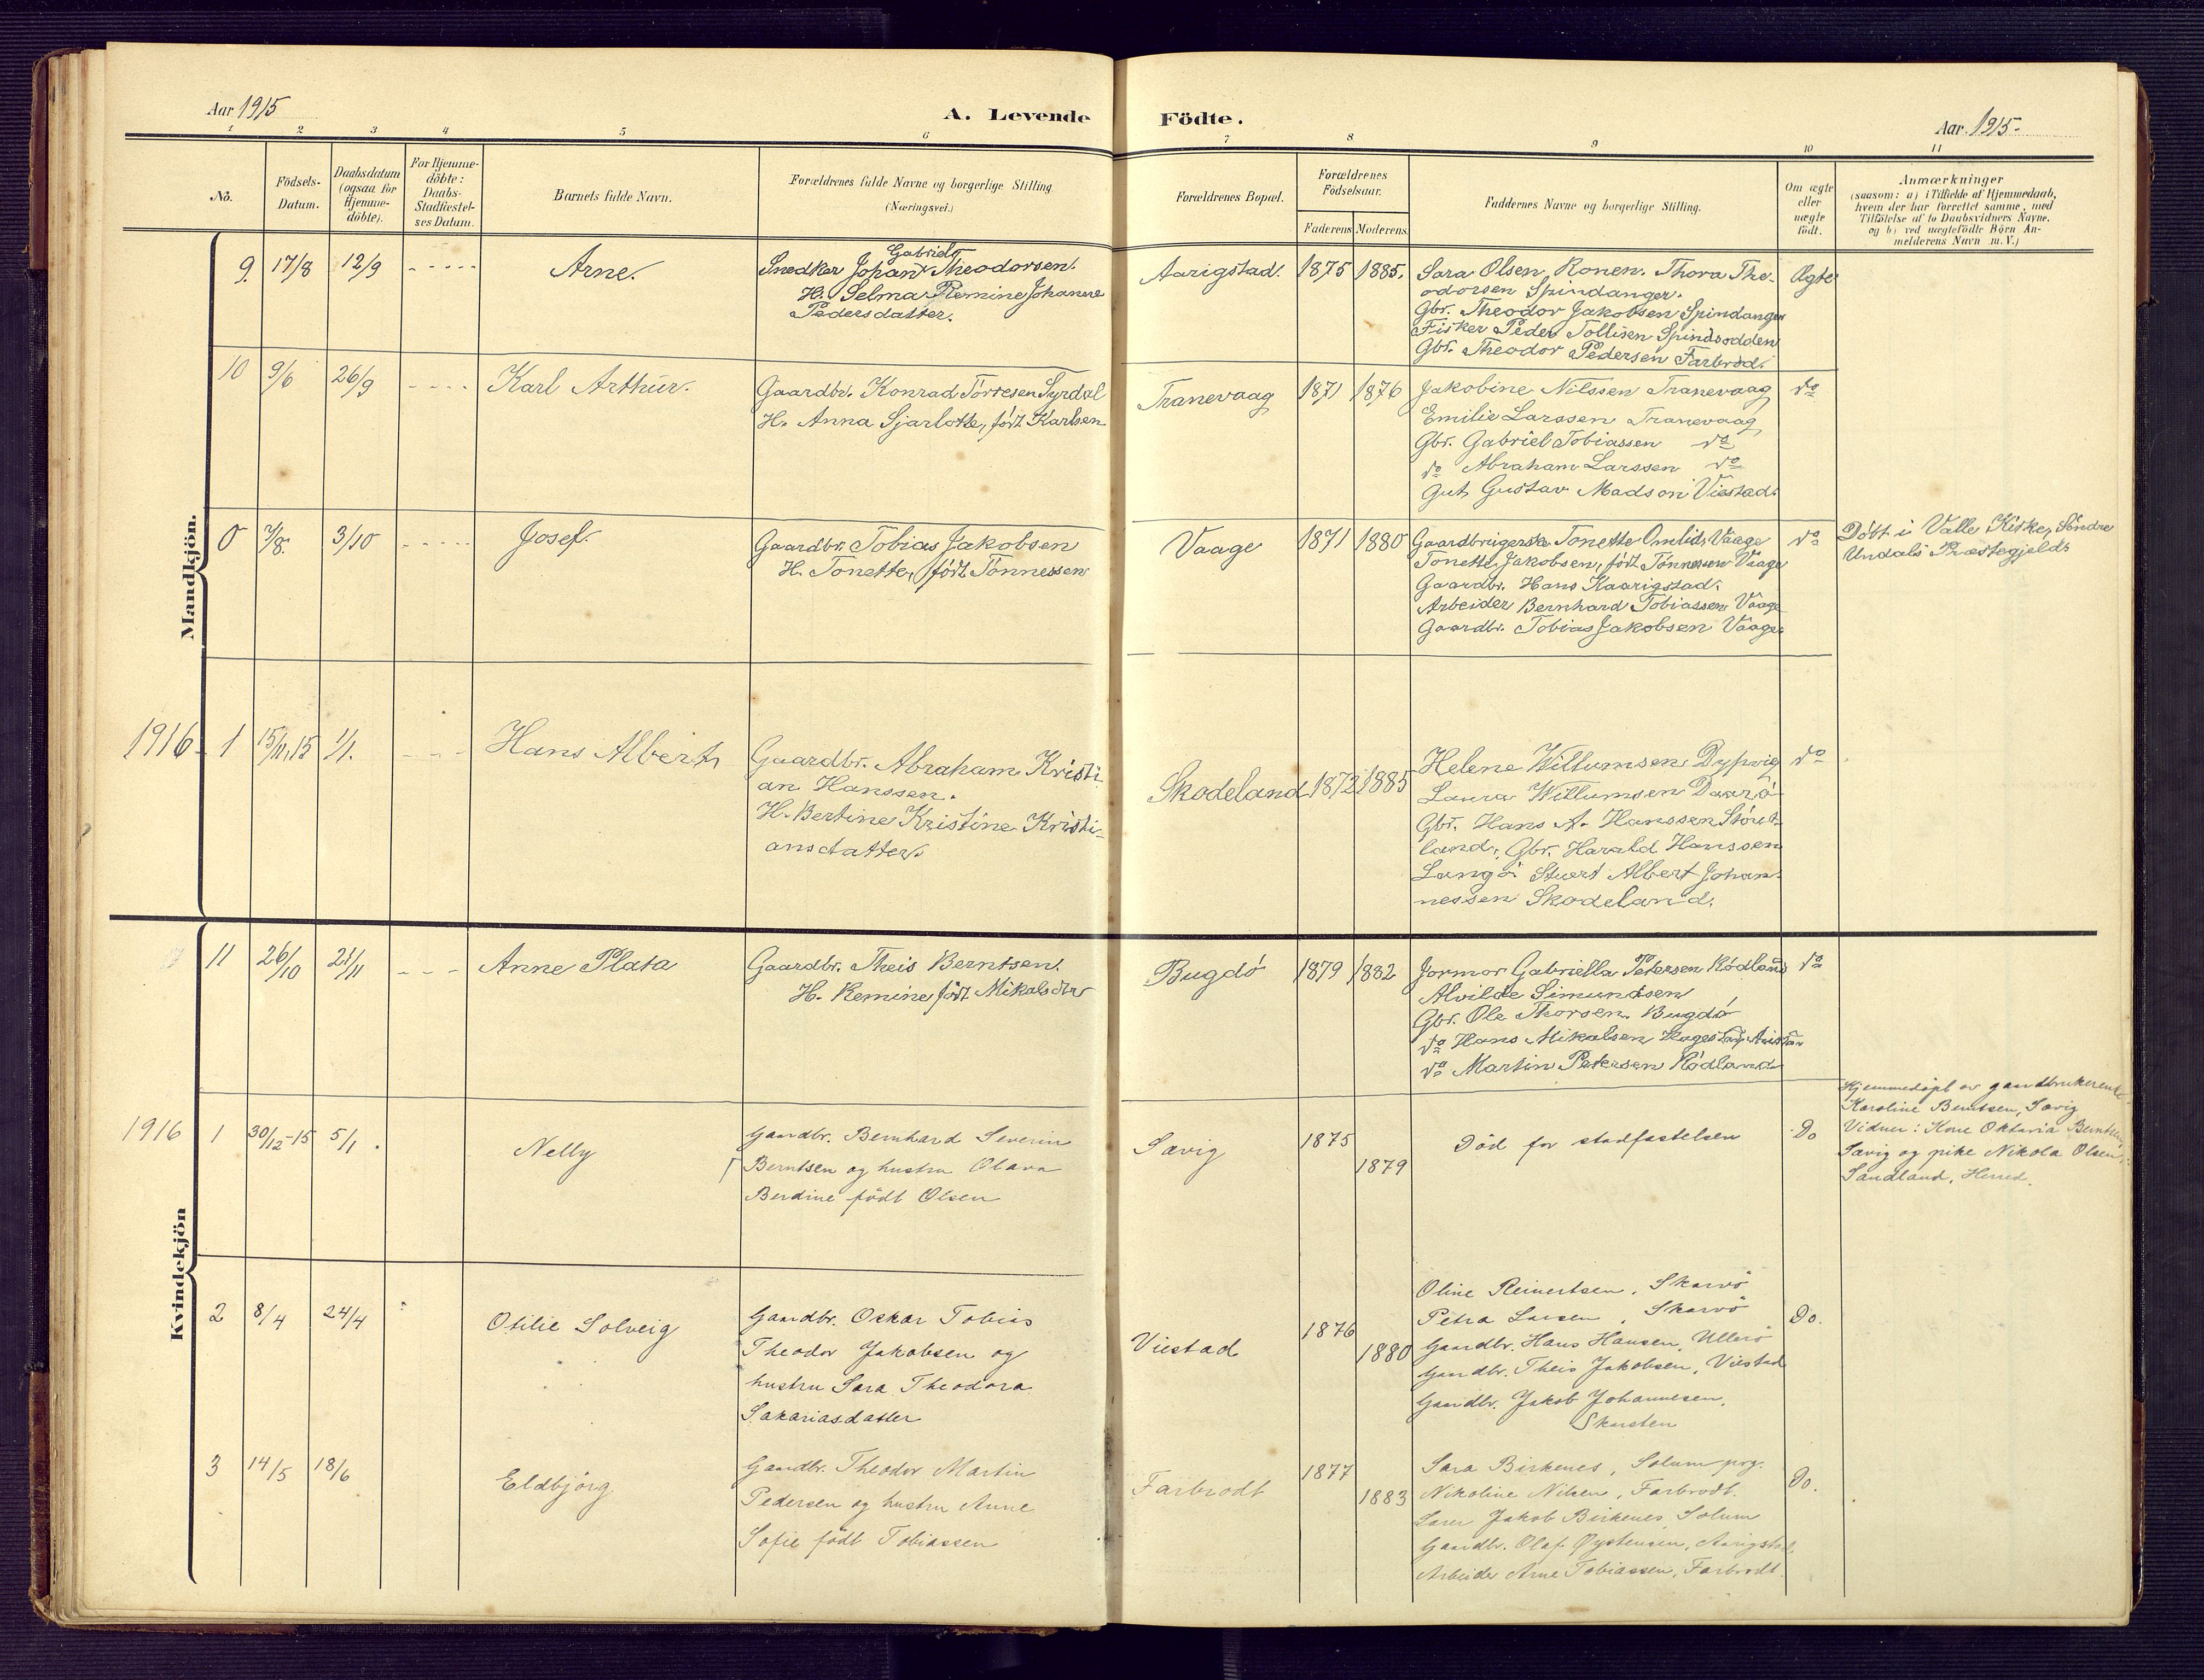 Aar 1915
A. Levende Födte.
Aar 1915.
1 2 3 4 5 6 7 8 9 10 11
No.
Födsels-
Datum.
Daabsdatum
(ogsaa for
Hjemme-
döbte).
For Hjemme-
döbte:
Daabs-
Stadfæstel-
ses Datum.
Barnets fulde Navn.
Forældrenes fulde Navne og borgerlige Stilling
(Næringsvei.)
Forældrenes Bopæl.
Forældrenes
Födselsaar.
Faderens Moderens.
Faddernes Navne og borgerlige Stilling.
Om ægte
eller
uægte
födt.
Anmærkninger
(saasom: a) i Tilfælde af Hjemmedaab,
hvem der har forrettet samme, med
Tilföielse af to Daabsvidners Navne.
og b) ved uægtefödte Börn An-
melderens Navn m. V.)
Mandkjön.
9. 17/8 12/9 - - - - - Arne.
Gabriel
Snedker Johan Theodorsen.
H. Selma Remine Johanne
Pedersdatter.
Aarigstad. 1875 1885.
Sara Olsen, Ronen. Thora The-
odorsen Spindanger.
Gbr. Theodor Jakobsen Spindanger
Fisker Peder Tollisen Spindsodden
Gbr. Theodor Pedersen Farbrod.
Ægte
10 9/6 26/9 - - - - Karl Arthur.
Gaardbr. Konrad Torresen Tyrdal
H. Anna Sjarlotte, födt Karlsen
Tranevaag 1871 1876
Jakobine Nilssen Tranevaag
Emilie Larssen Tranevaag
Gbr. Gabriel Tobiassen do
do Abraham Larssen do
Gut Gustav Madson Viestad.
do
0 7/8. 3/10 - - - - - Josef.
Gaardbr. Tobias Jakobsen
H. Tonette, födt Tönnessen
Vaage 1871 1880
Gaardbrugerske Tonette Omlid, Vaage
Tonette Jakobsen, födt Tönnessen Vaage
Gaardbr. Hans Kaarigstad.
Arbeider Bernhard Tobiassen Vaage
Gaardbr. Tobias Jakobsen Vaage
do
Döbt i Valle Kirke, Söndre
Undals Præstegjeld.
1916 1 15/11,15 1/1. - - - Hans Albert
Gaardbr. Abraham Kristi-
an Hanssen.
H. Bertine Kristine Kristi-
ansdatter.
Skodeland 1872 1885
Helene Willumsen Dypvig
Laura Willumsen
Gbr. Hans A. Hanssen
land, Gbr. Harald Hanssen
Langö Albert Johan-
nessen Skodeland.
do
Kvindekjön
11 26/10 21/11 - - - Anne Plata
Gaardbr. Theis Berntsen.
H. Remine födt Mikalsdtr
Bugdö 1879 1882
Jormor Gabriella Petersen Rödland
Alvilde Simundsen
Gbr. Ole Thorsen. Bugdö
do Hans Mikalsen
do Martin Petersen Rödland
do
1916 1 30/12-15 5/1. Nelly
Gaardbr. Bernhard Severin
Berntsen og hustru Olava
Berdine födt Olsen
Sævig 1875
1879
Död før stadfæstelsen
Do
Hjemmedöpt av gaardbrukerenke
Karoline Berntsen, Sævig
Vidner: Kone Oktavia Berntsen,
Sævig og pike Nikola Olsen,
Sandland, Herred.
2 8/4 24/4 Otilie Solveig
Gaardbr. Oskar Tobias
Theodor Jakobsen og
hustru Sara Theodora
Sakariasdatter
Viestad 1876
1880
Oline Reinertsen, Skarvö
Petra Larsen, Skarvö
Gaardbr. Hans Hansen, Ullerö
Gaardbr. Theis Jakobsen, Viestad
Gaardbr. Jakob Johannesen,
Skarsten
Do.
3 14/5 18/6 Eldbjörg
Gaardbr. Theodor Martin
Pedersen og hustru Anne
Sofie födt Tobiassen
Farbrodt 1877
1883
Sara Birkenes, Solum prg.
Nikoline Nilsen, Farbrodt.
Lærer Jakob Birkenes, Solum
Gaardbr. Olaf Øysteinsen, Aarigstad.
Arbeider Arne Tobiassen, Farbrodt.
Do.